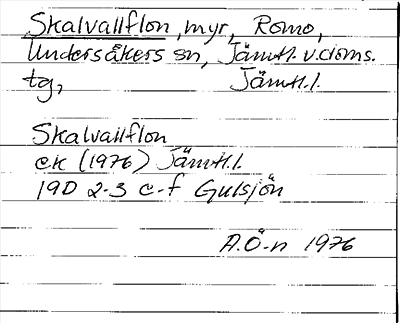 Skalvallflon, myr, Romo,
Undersåkers sn, Jämtl. v. doms.
tg, Jämtl.l.
Skalvallflon
ek (1976) Jämtl.l.
19D 2-3 e-f Gulsjön
A.Ö-n 1976